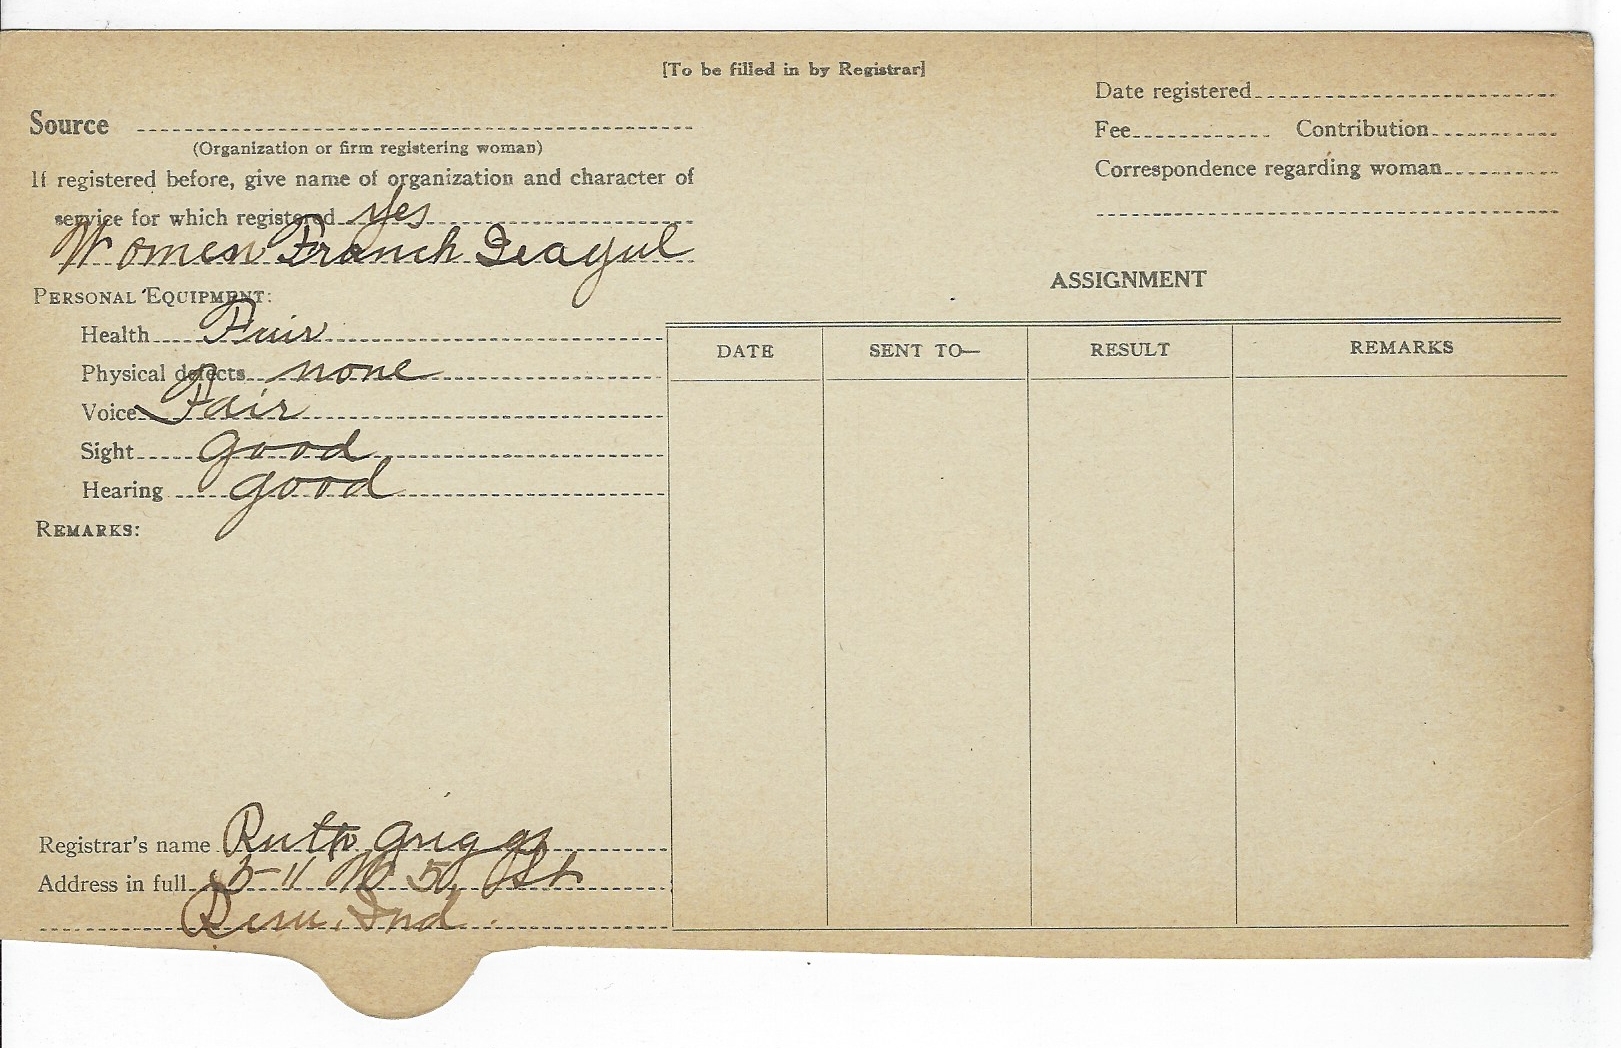 [To be filled in by Registrar]
Date registered
Source
Fee Contribution
(Organization or firm registering woman)
If registered before, give name of organization and character of
Correspondence regarding woman
service for which registered yes
Women Franch Leagul
ASSIGNMENT
PERSONAL EQUIPMENT:
Health Fair
DATE SENT TO— RESULT REMARKS
Physical defects none
Voice Fair
Sight good
Hearing good
REMARKS:
Registrar's name Ruth Griggs
Address in full W 5 St
Peru, Ind.